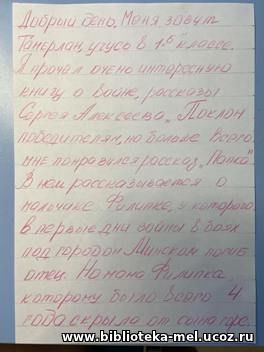 Добрый день. Меня зовут
Тамерлан, учусь в 1 "б" классе.
Я прочёл очень интересную
книгу о войне, рассказы
Сергея Алексеева "Поклон
победителям, но больше всего
мне понравился рассказ "Папка"
В нем рассказывается о
мальчике Филипке, у которого
в первые дни войны в боях
под городом Минском погиб
отец. Но мама Филипка,
которому было всего 4
года скрыла от сына горе.
www.biblioteka-mel.ucoz.ru